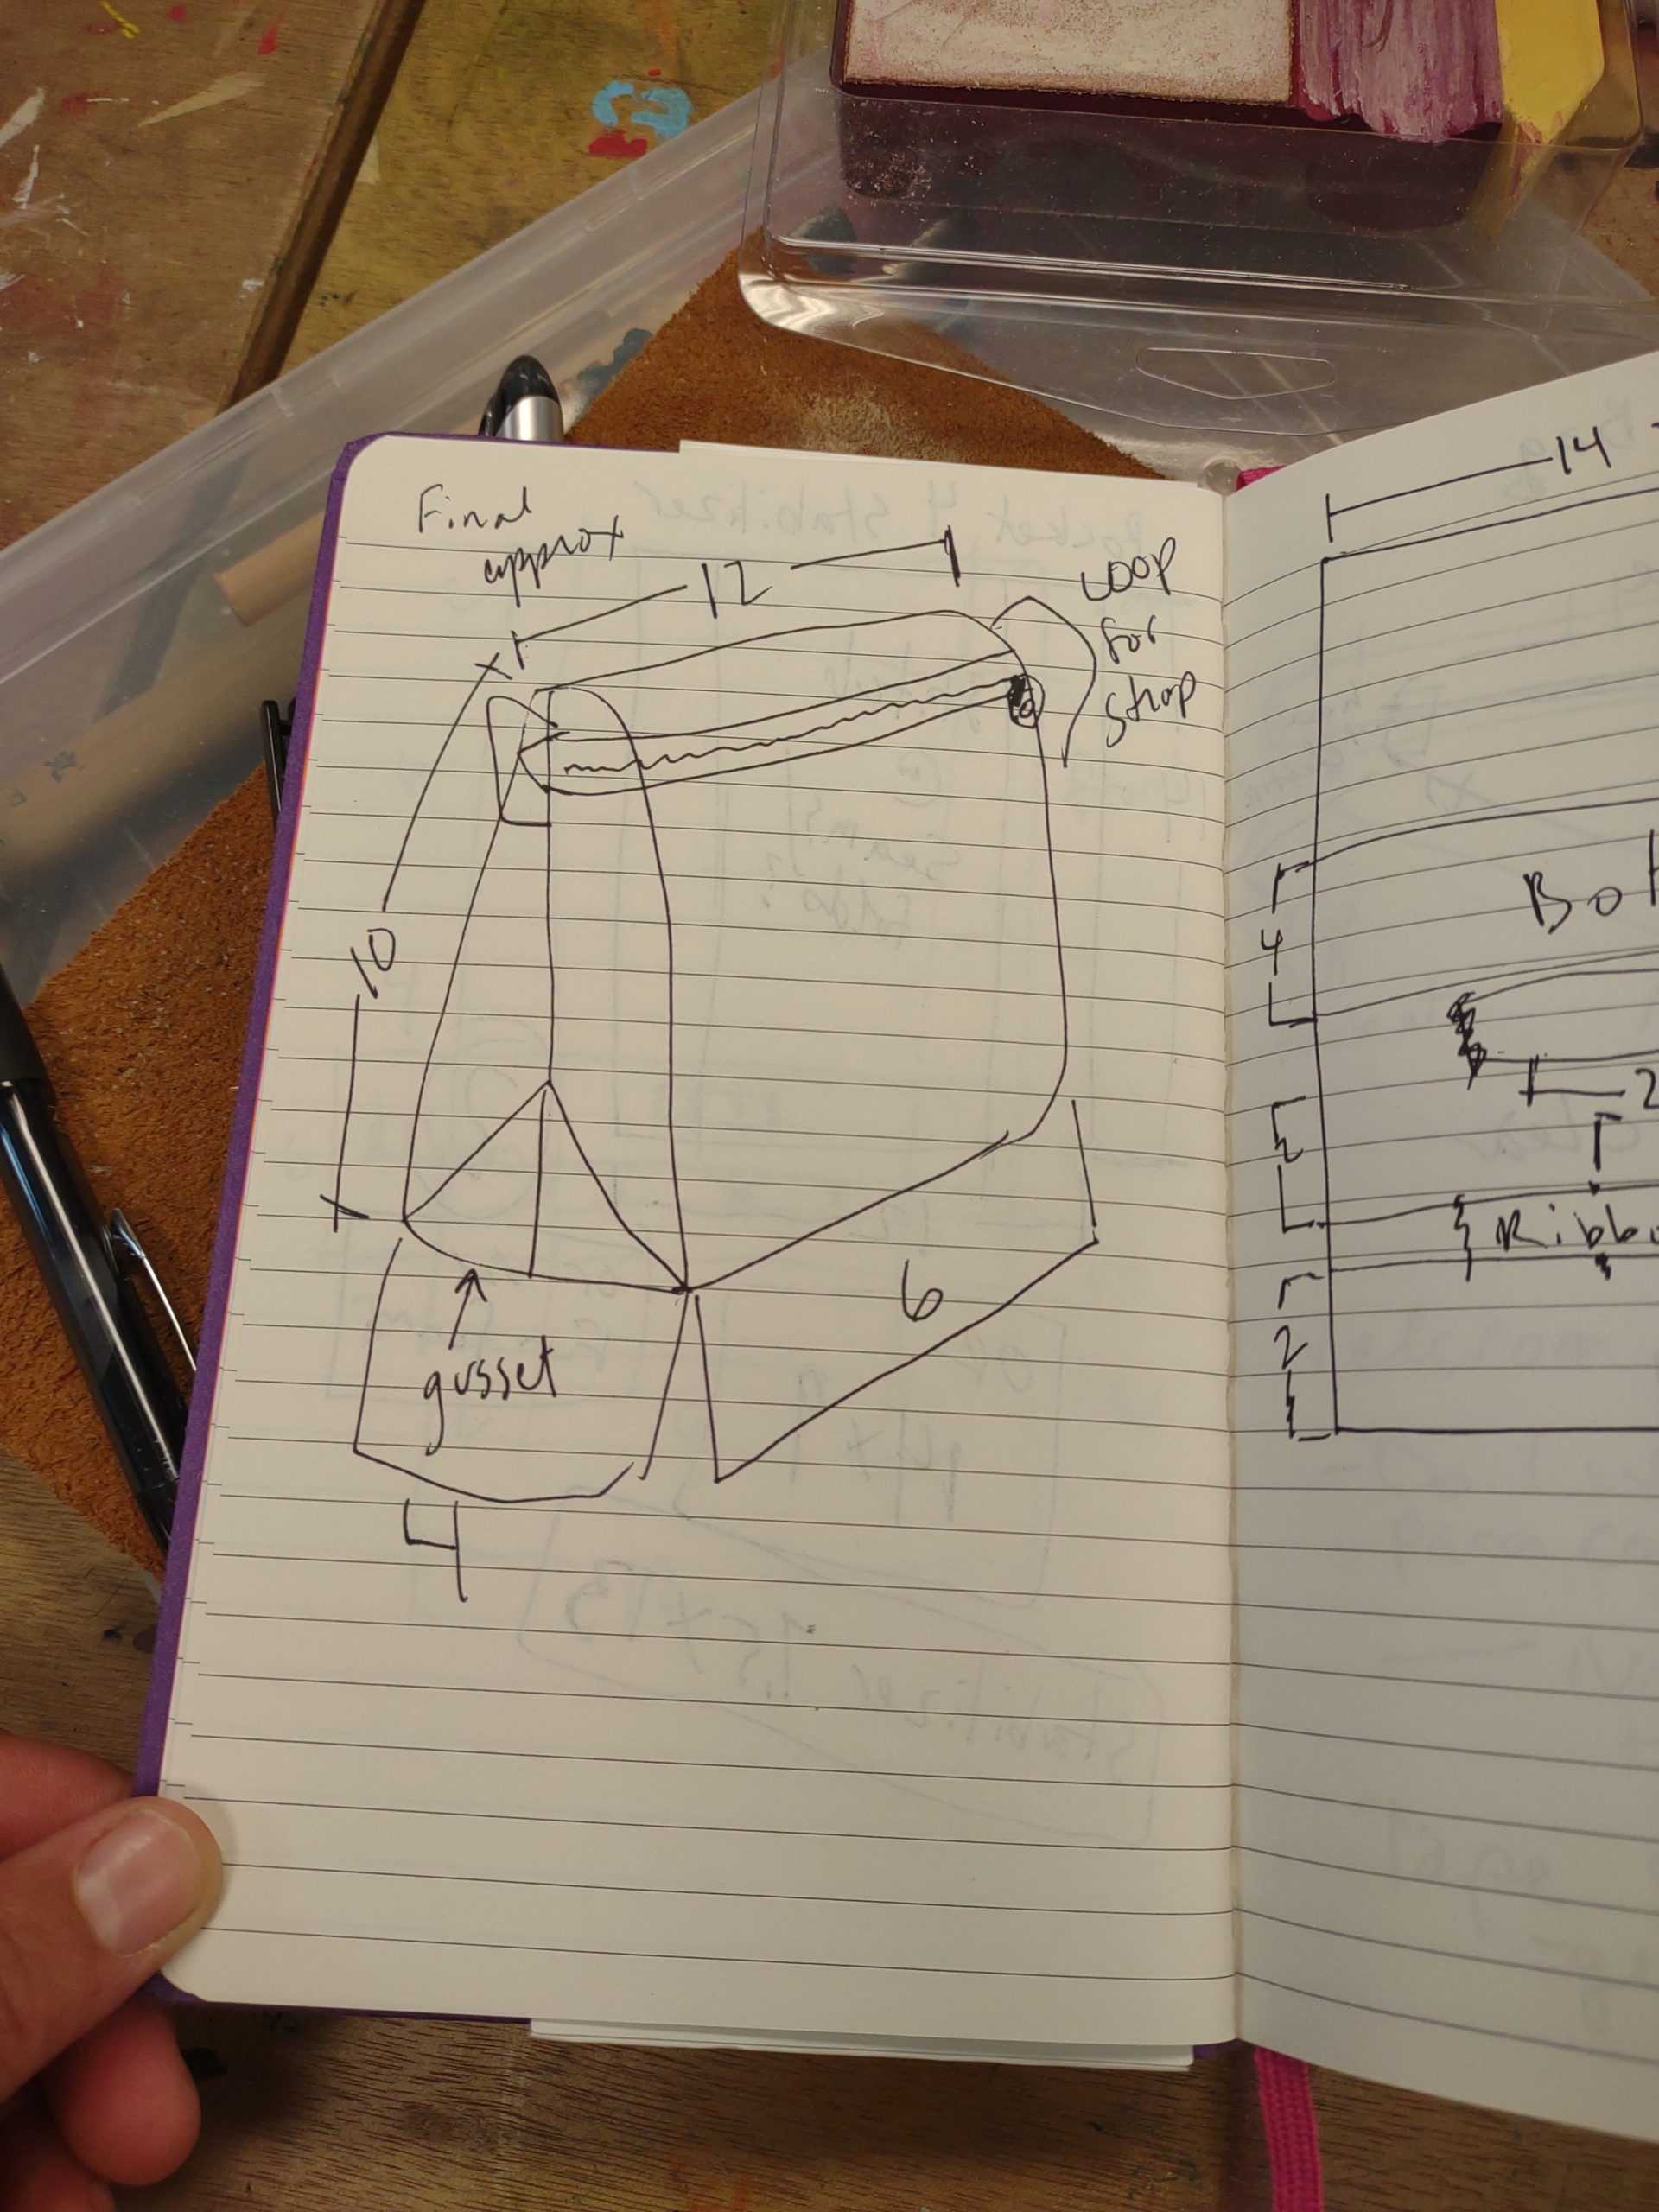 Final
approx
12
Loop
for
strap
10
6
gusset
4
14
4
2
2
2